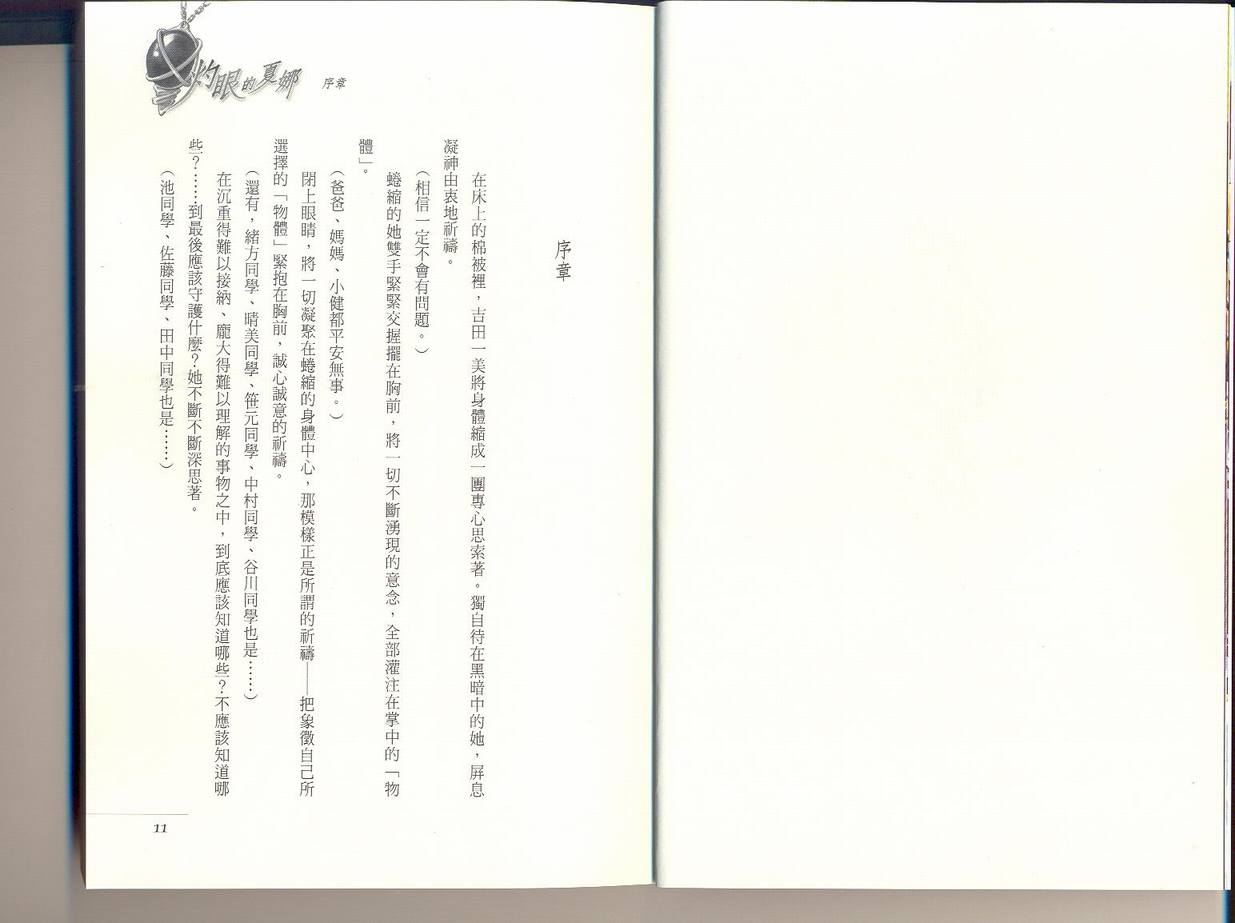 灼眼的夏娜 序章
序章
在床上的棉被裡，吉田一美將身體縮成一團專心思索著。獨自待在黑暗中的她，屏息
凝神由衷地祈禱。
（相信一定不會有問題。）
蜷縮的她雙手緊緊交握擺在胸前，將一切不斷湧現的意念，全部灌注在掌中的「物
體」。
（爸爸、媽媽、小健都平安無事。）
閉上眼睛，將一切凝聚在蜷縮的身體中心，那模樣正是所謂的祈禱——把象徵自己所
選擇的「物體」緊抱在胸前，誠心誠意的祈禱。
（還有，緒方同學、晴美同學、笹元同學、中村同學、谷川同學也是……）
在沉重得難以接納、龐大得難以理解的事物之中，到底應該知道哪些？不應該知道哪
些？……到最後應該守護什麼？她不斷不斷深思著。
（池同學、佐藤同學、田中同學也是……）
11